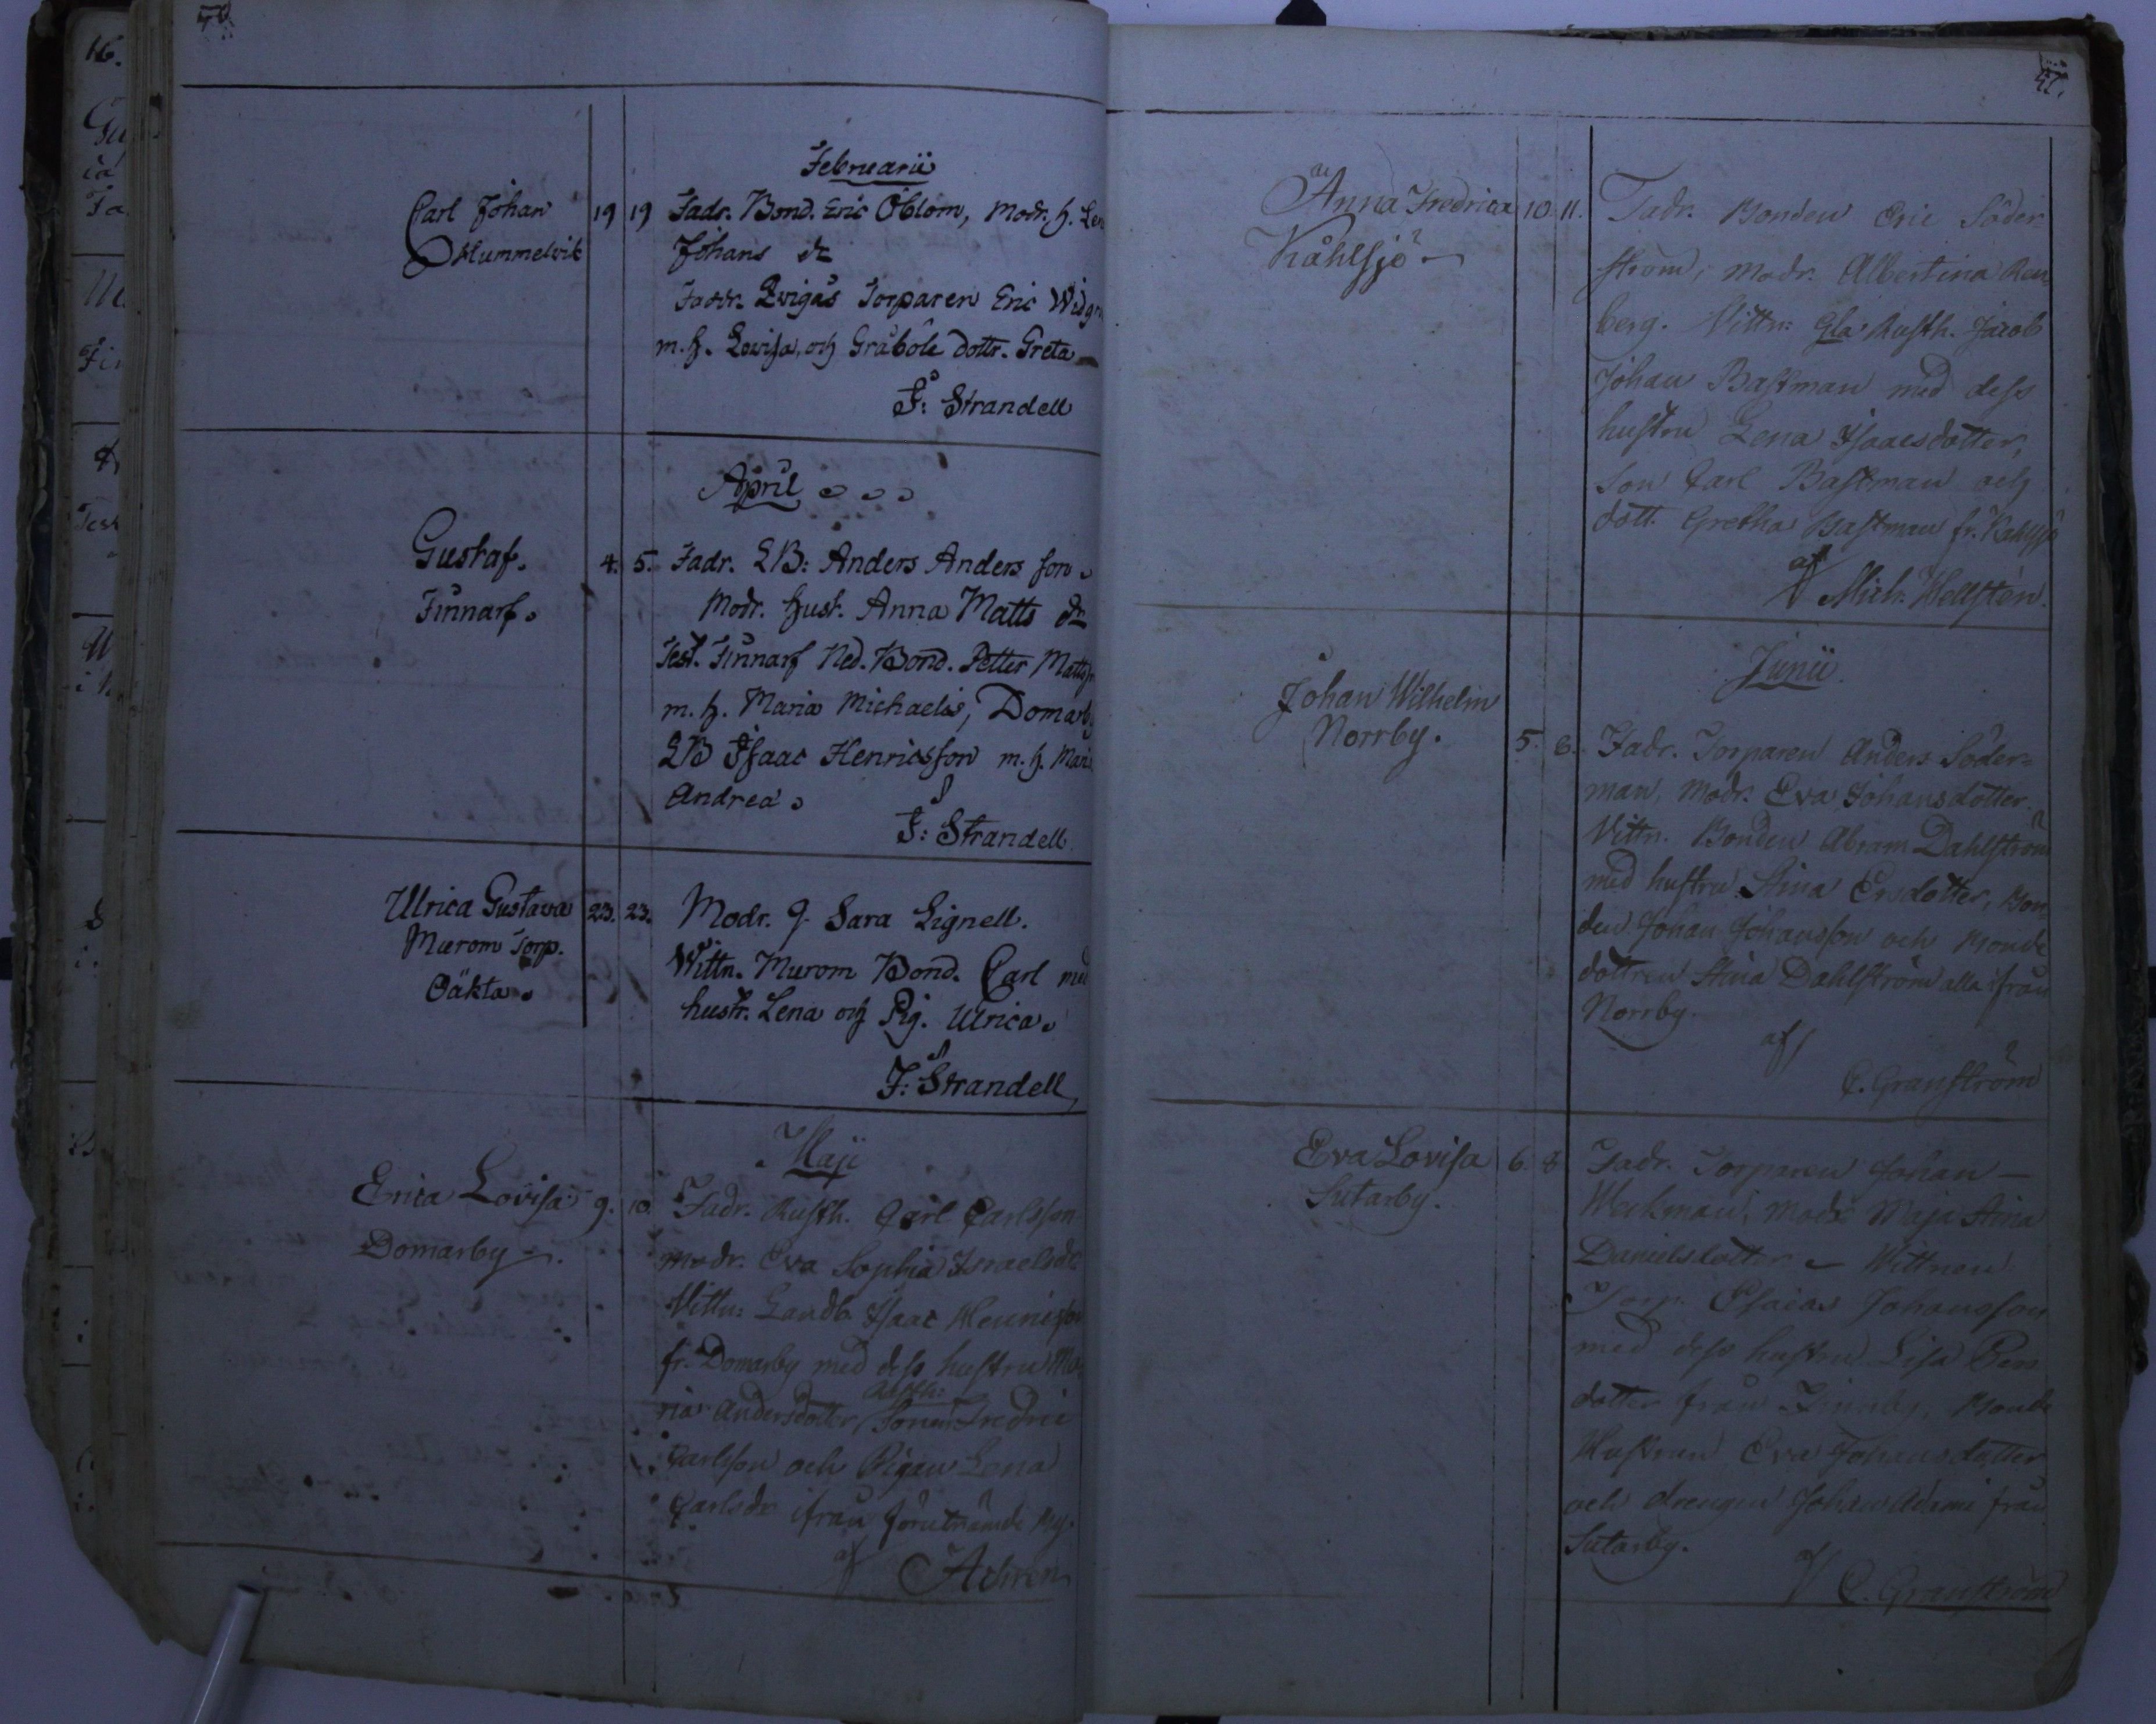 Februarii
Carl Johan 19 19 Fadr. Bond. Eric Öblom, Modr. h. Len
Hummelvik Johans dr
Torparen Eric
m. h. Lovisa, och Gräböle dottr. Greta
F: Strandell
April
Gustaf. 4. 5. Fadr. LB: Anders Anders son
Finnarf. Modr. Hust. Anna Matts dr
Test. Finnarf Ned. Bond. Petter Matts
m. h. Maria Michaelis, Domarby
LB Isaac Henricsson m. h. Mari
Andreæ
F: Strandell
Ulrica Gustava 23. 23. Modr. q. Sara Lignell.
Murom Torp. Wittn. Murom Bond. Carl med
Oäkta. hustr. Lena och Pig. Ulrica.
F: Strandell
Maji
Erica Lovisa 9. 10. Fadr. Rusth. Carl Carlsson
Domarby. modr. Eva Sophia Israelsdr
Vittn: Landb Isaac Hennisson
fr. Domarby med dess hustru Ma
Rusth:
ria Andersdotter, Sonen Fredric
Carlsson och Pigan Lena
Carlsdr ifrån förutnämde By.
af
Achren
47.
Anna Fredrica 10. 11. Fadr. Bonden Eric Söder
Kåhlsjö ström, modr. Albertina Ren
berg. Vittn: Gla Rusth. Jacob
Johan Bastman med dess
hustru Lena Isaacsdotter,
Son Carl Bastman och
dott. Gretha Bastman fr. Kahlsjö
af
Mich: Wellsten.
Junii.
Johan Wilhelm
Norrby. 5. 6. Fadr. Torparen Anders Söder=
man, Modr. Eva Johansdotter.
Vittn. Bonden Abram Dahlström
med hustru Stina Ersdotter, Bon=
den Johan Johansson och Bonde
dottren Stina Dahlström alla ifrån
Norrby.
af
C. Granström
Eva Lovisa 6. 8. Fadr. Torparen Johan
Sutarby. Weckman, Modr Maja Stina
Danielsdotter Wittnen
Torp. Esaias Johansson
med dess hustru Lisa Ers
dotter från Finnby, Bonde
Hustrun Eva Johansdotter
och drengen Johan Adami från
Sutarby.
C. Granström